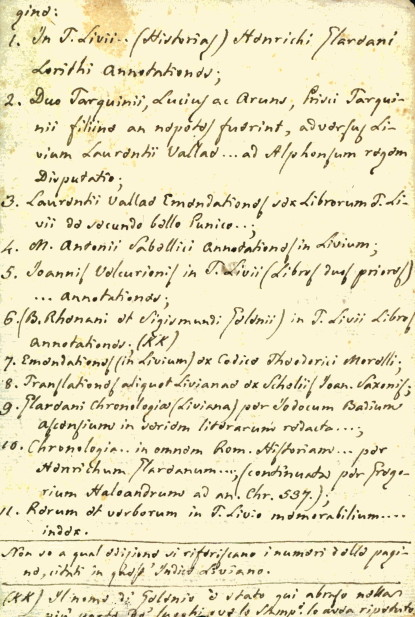 gine:
1. In T. Livii... (Historias) Henrichi Glareani
Lorithi Annotationes;
2. Duo Tarquinii, Lucius ac Aruns, Prisci Tarqui-
nii filiine an nepotes fuerint, adversus Li-
vium Laurentii Vallae ... ad Alphonsum regem
Disputatio;
3. Laurentii Vallae Emendationes sex Librorum T. Li-
vii de secundo bello Punico...;
4. M. Antonii Sabellici Annotationes in Livium;
5. Joannis Velcurionis in T. Livii (Libros duos priores)
... annotationes;
6. (B. Rhenani et Sigismundi Gelenii) in T. Livii Libros
annotationes; (XX)
7. Emendationes (in Livium) ex Codice Theoderici Morelli;
8. Translationes aliquot Livianae ex Scholiis Joan. Saxonis;
9. Glareani Chronologia (Liviana) per Jodocum Badium
Ascensium in seriem literarum redacta...;
10. Chronologia.. in omnem Rom. Historiam... per
Henrichum Glareanum...; (continuata per Grego-
rium Haloandrum ad an. Chr. 537.);
11. Rerum et verborum in T. Livio memorabilium....
index.
Non so a qual edizione si riferiscano i numeri delle pagi-
ne, citati in quest' Indice Liviano.
(XX) Il nome di Gelenio è stato qui abraso nella
più parte de' luoghi ove lo Stamp.e lo avea ripetuto